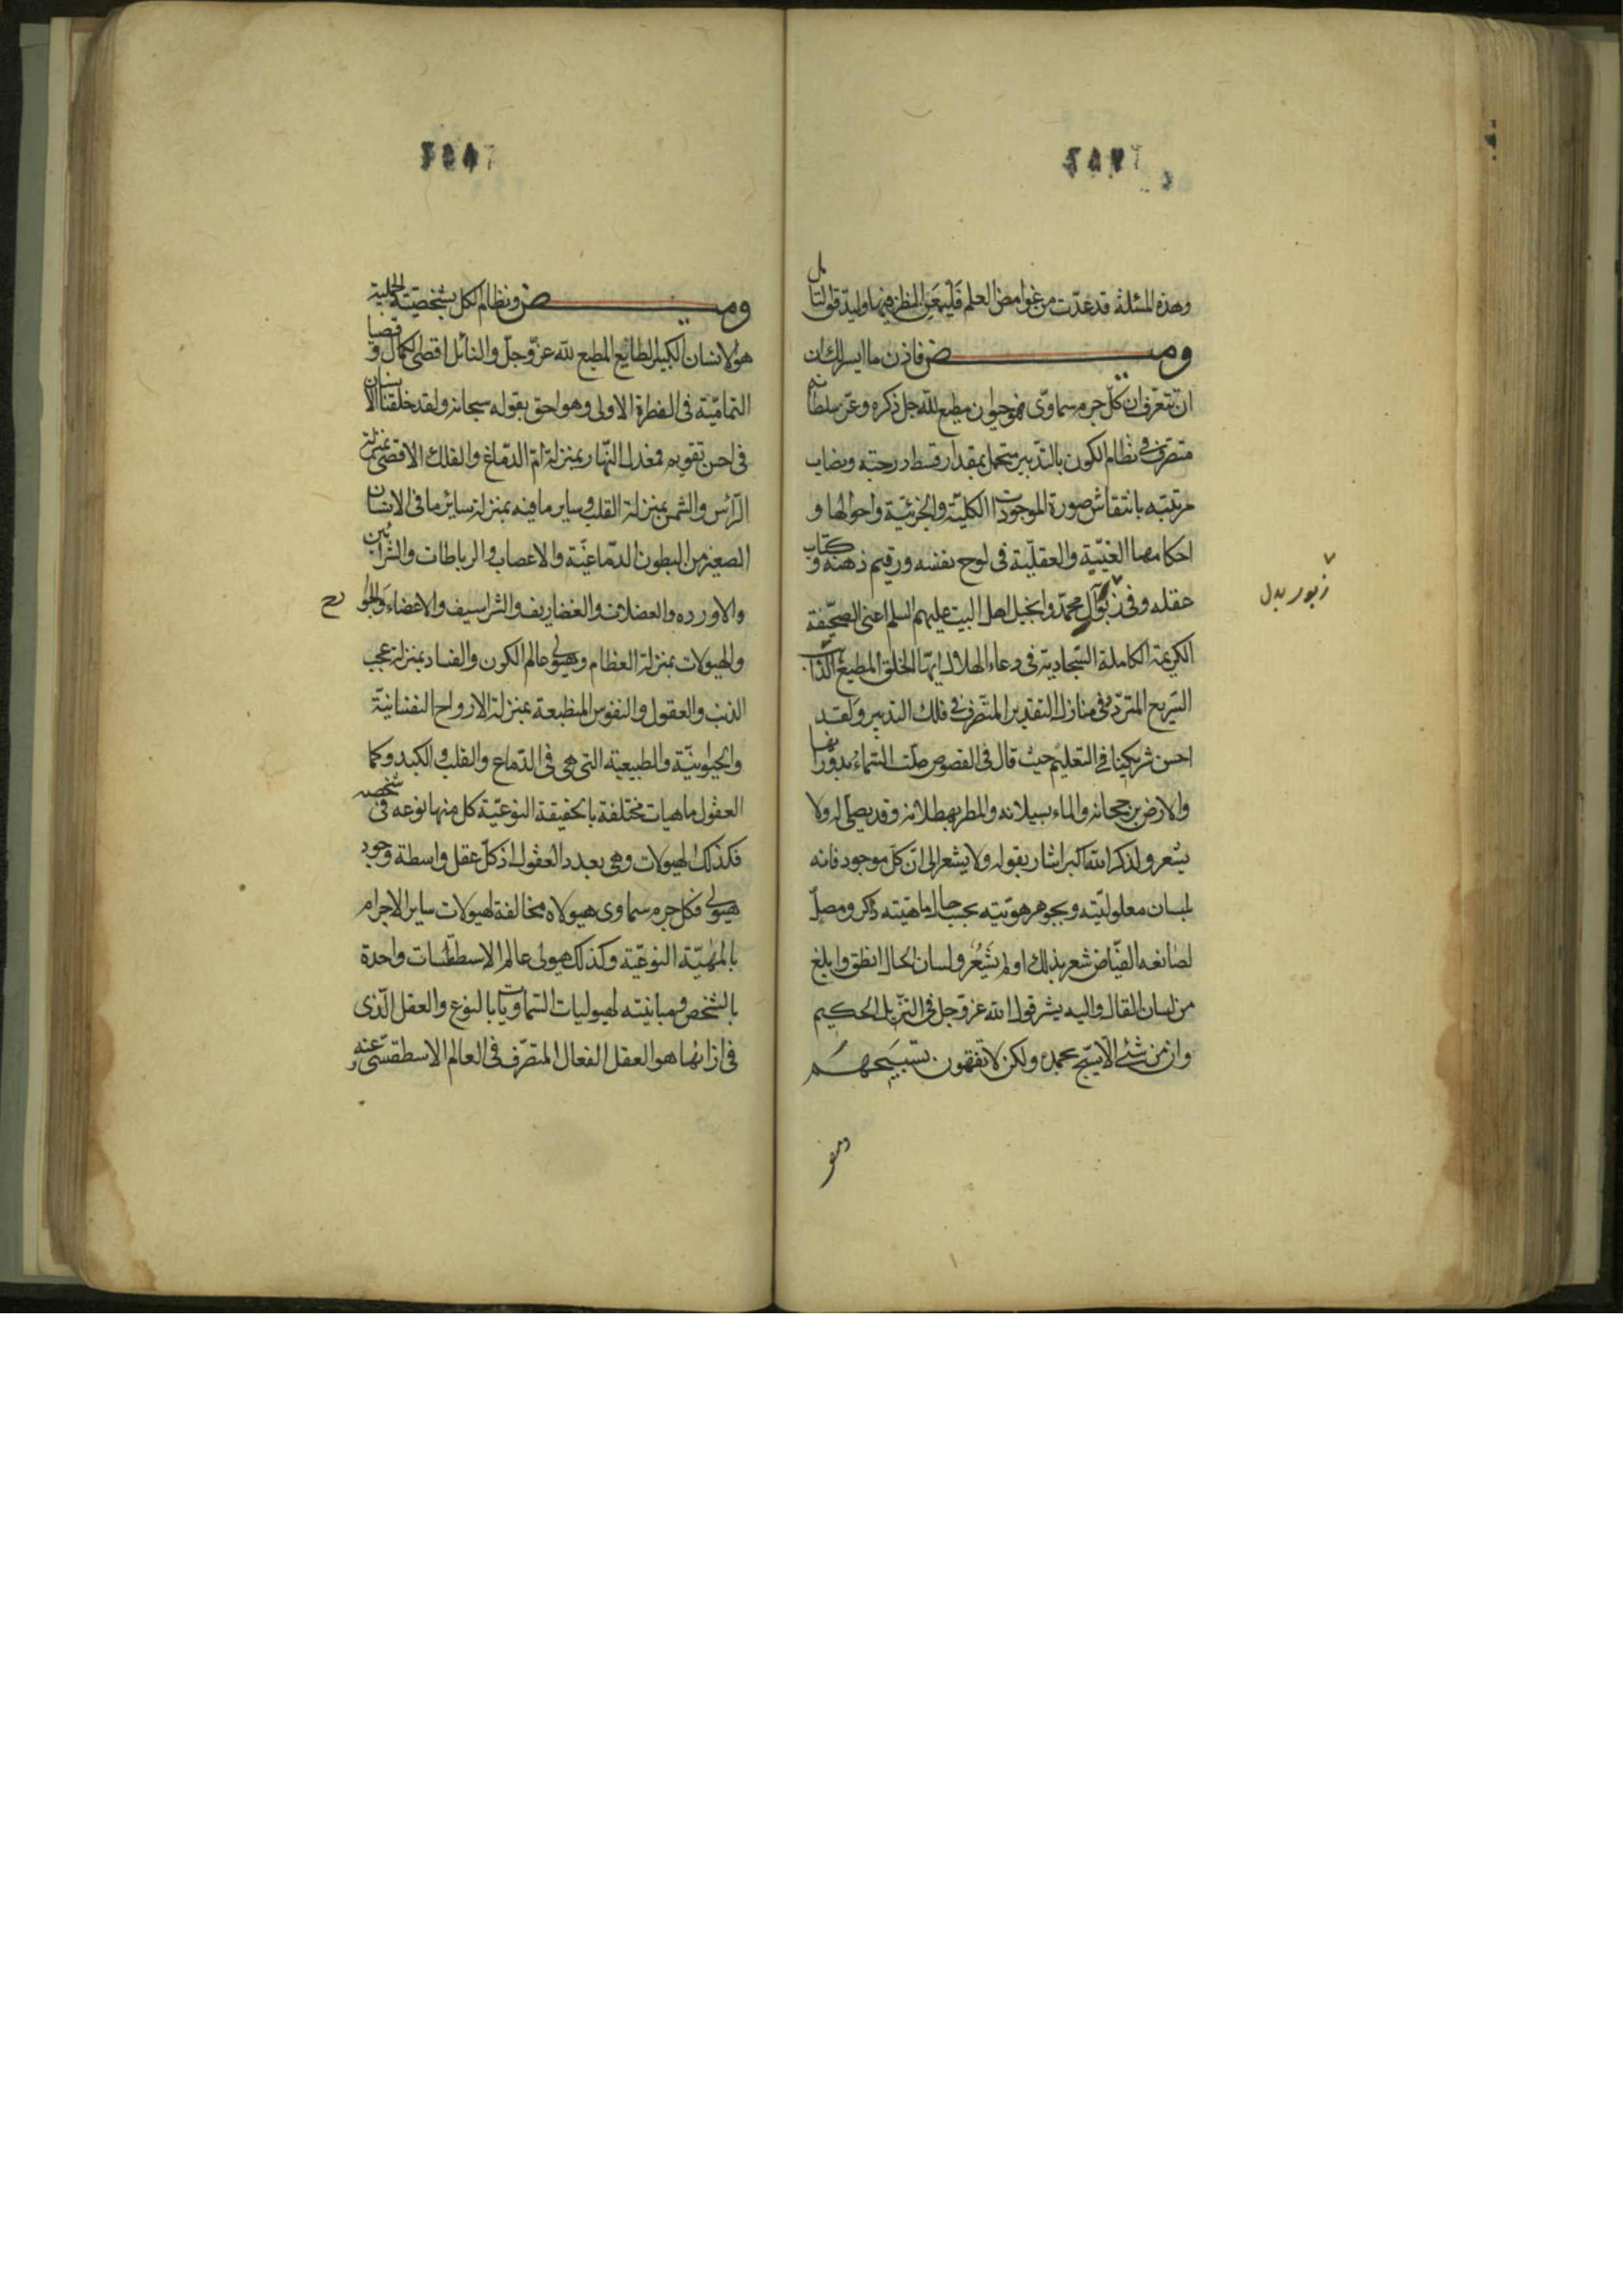 وهذه المسئلة قد عدّت من غوامض العلم فليمعن النظر فيها وليدقق التامل
وميض فاذن ما ايسر لك ان
ان تتعرف ان كل جرم سماوى فهو حيوان مطيع لله جل ذكره وعز سلطانه
متصرف فى نظام الكون بالتدبير متحمل بمقدار قسط درجته ونصاب
مرتبته بانتقاش صورة الموجودات الكلية والجزئية واحوالها و
احكامها الغيبية والعقلية فى لوح نفسه ورقيم ذهنه وكتاب
عقله وفى زبور آل محمد وانجيل اهل البيت عليهم السلم اعنى الصحيفة
الكريمة الكاملة السجادية فى دعاء الهلال ايها الخلق المطيع الدائب
السريع المتردد فى منازل التقدير المتصرف فى فلك التدبير ولقد
احسن شريكينا فى التعليم حيث قال فى الفصوص صلت السماء بدورانها
والارض برجحانه والماء بسيلانه والمطر بهطلانه وقد يصلى له ولا
يشعر ولذكر الله اكبر اشار بقوله ولا يشعر الى ان كل موجود فانه
بلسان معلوليته وبجوهر هويته بحسب حال ماهيته ذاكر ومصل
لصانعه الفياض شعر بذلك او لم يشعر ولسان الحال انطق وابلغ
من لسان القال واليه يشر قول الله عز وجل فى التنزيل الحكيم
وان من شئ الا يسبح بحمده ولكن لا تفقهون تسبيحهم
زبور بدل
وميض ونظام الكل بشخصيته الجملية
هو الانسان الكبير الطايع المطيع لله عز وجل والنائل اقصى الكمال وقصيا
التمامية فى الفطرة الاولى وهو احق بقوله سبحانه ولقد خلقنا الانسان
فى احسن تقويم فمعدل النهار بمنزلة ام الدماغ والفلك الاقصى بمنزلة
الرأس والشمس بمنزلة القلب وساير ما فيه بمنزلة ساير ما فى الانسان
الصغير من البطون الدماغية والاعصاب والرباطات والشرائين
والاورده والعضلات والغضاريف والشراسيف والاعضاء والجوارح
والهيولات بمنزلة العظام وهيولى عالم الكون والفساد بمنزلة عجب
الذنب والعقول والنفوس المنطبعة بمنزلة الارواح النفسانية
والحيوانية والطبيعية التى هى فى الدماغ والقلب والكبد وكما
العقول ماهيات مختلفة بالحقيقة النوعية كل منها نوعه فى شخصه
فكذلك الهيولات وهى بعدد العقول اذ كل عقل واسطة وجود
هيولى فكل جرم سماوى هيولاه مخالفة لهيولات ساير الاجرام
بالمهية النوعية وكذلك هيولى عالم الاسطقسات واحدة
بالشخص ومباينته لهيوليات السماويات بالنوع والعقل الذى
فى ازائها هو العقل الفعال المتصرف فى العالم الاسطقسى عنه و